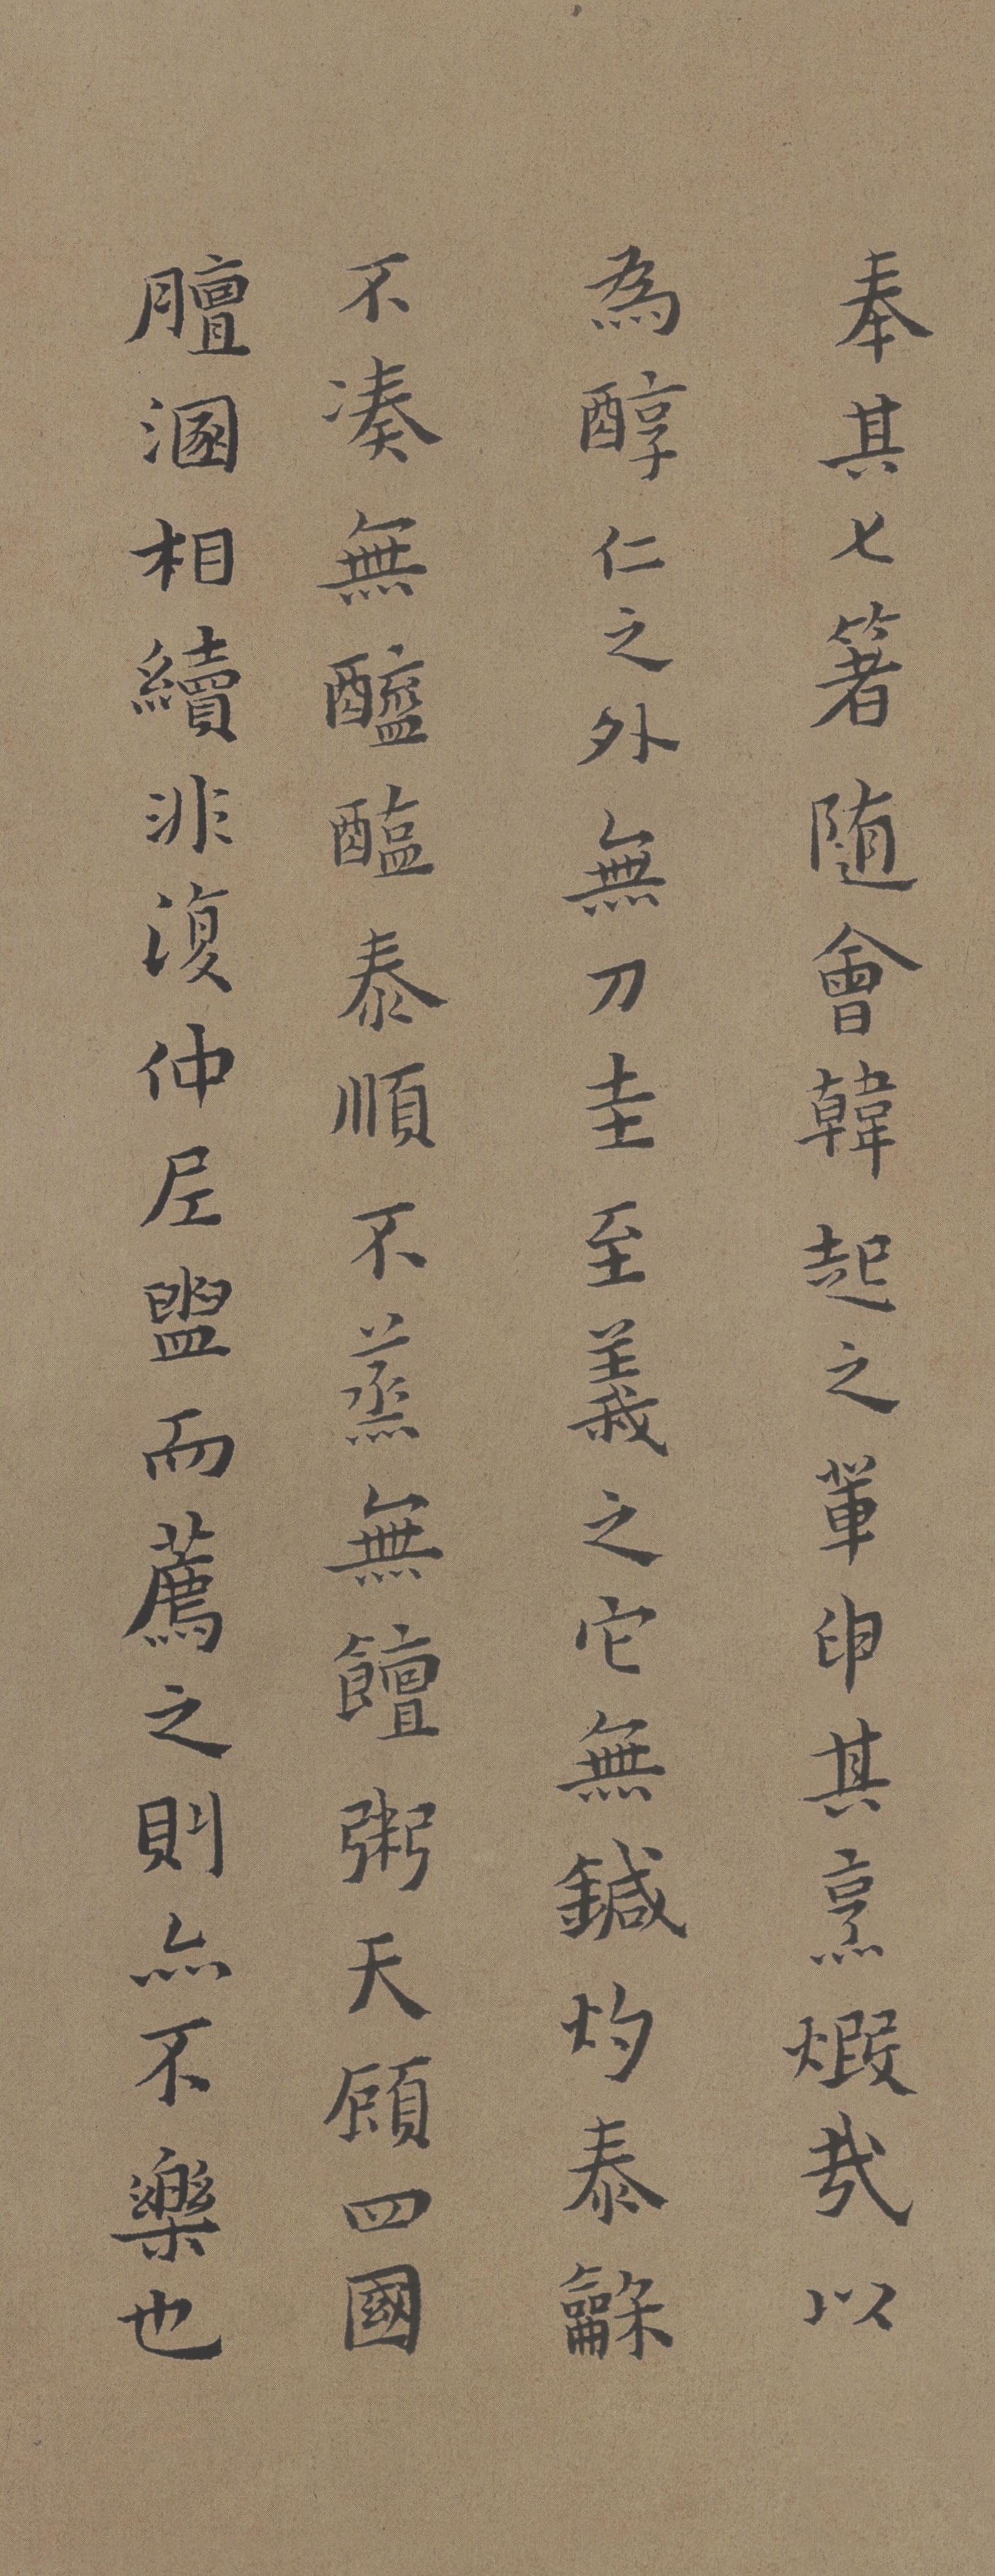 奉其匕箸随會韓起之軰印其烹煆哉以
為醇仁之外無刀圭至義之它無鍼灼泰龢
不凑無醯醢泰順不蒸無饘粥天顧四國
膻溷相續非復仲尼盥而薦之則亦不樂也